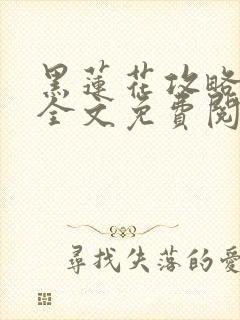 黑蓮花攻略
全文免費閱
尋找失落的愛